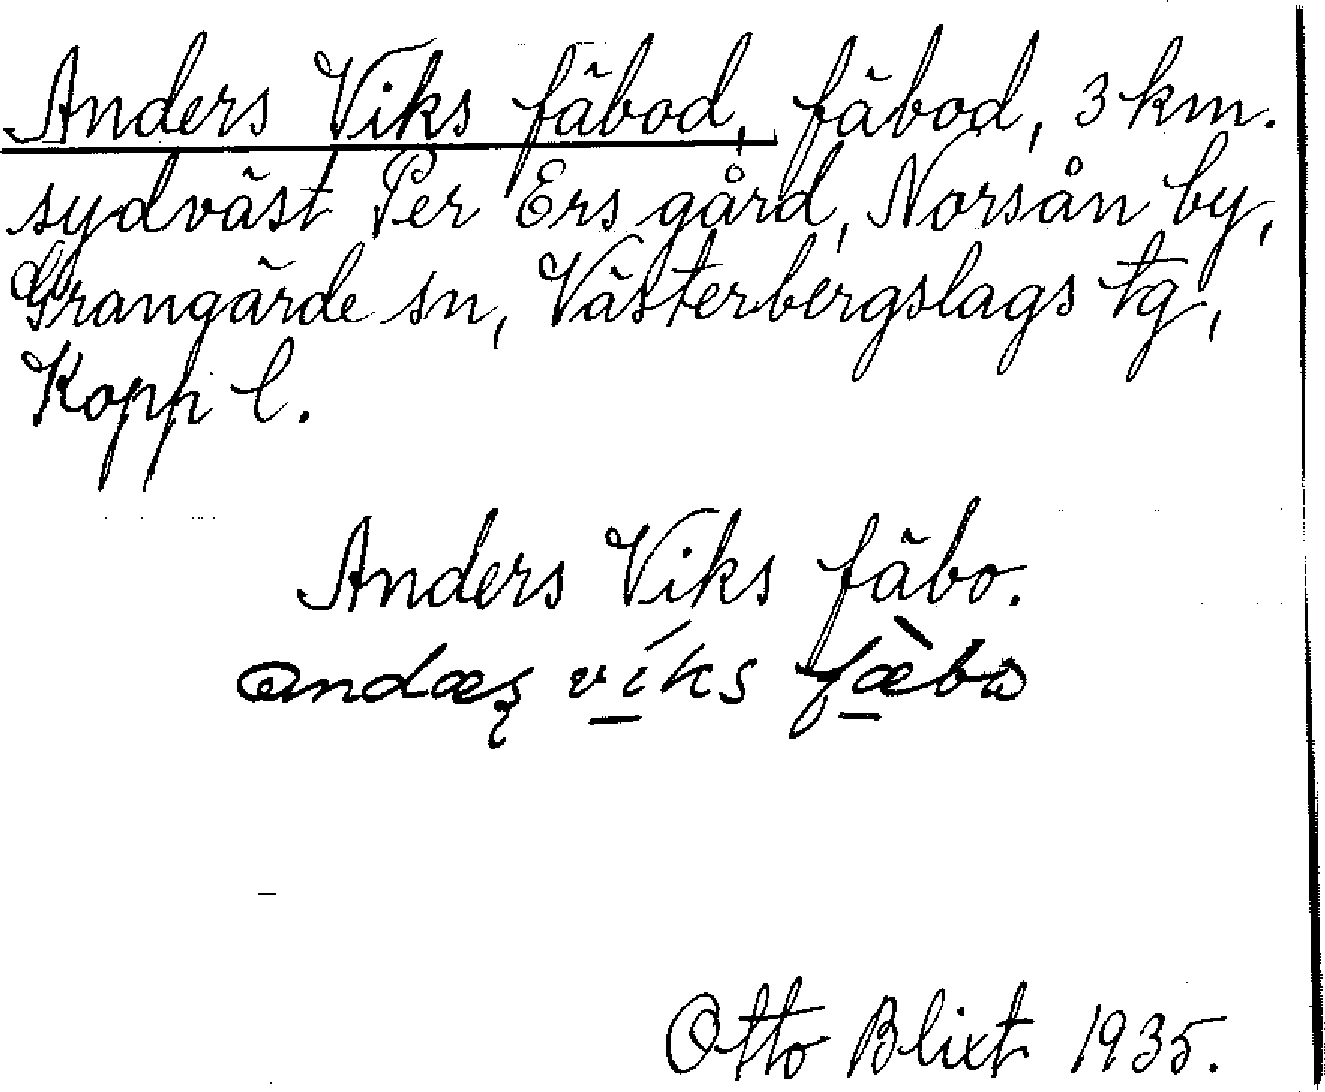 Anders Viks fäbod, fäbod, 3 km.
sydväst Per Ers gård, Norsån by,
Grangärde sn, Västerbergslags tg,
Kopp l.
Anders Viks fäbo.
víks fæ̀bɷ
Otto Blixt 1935.